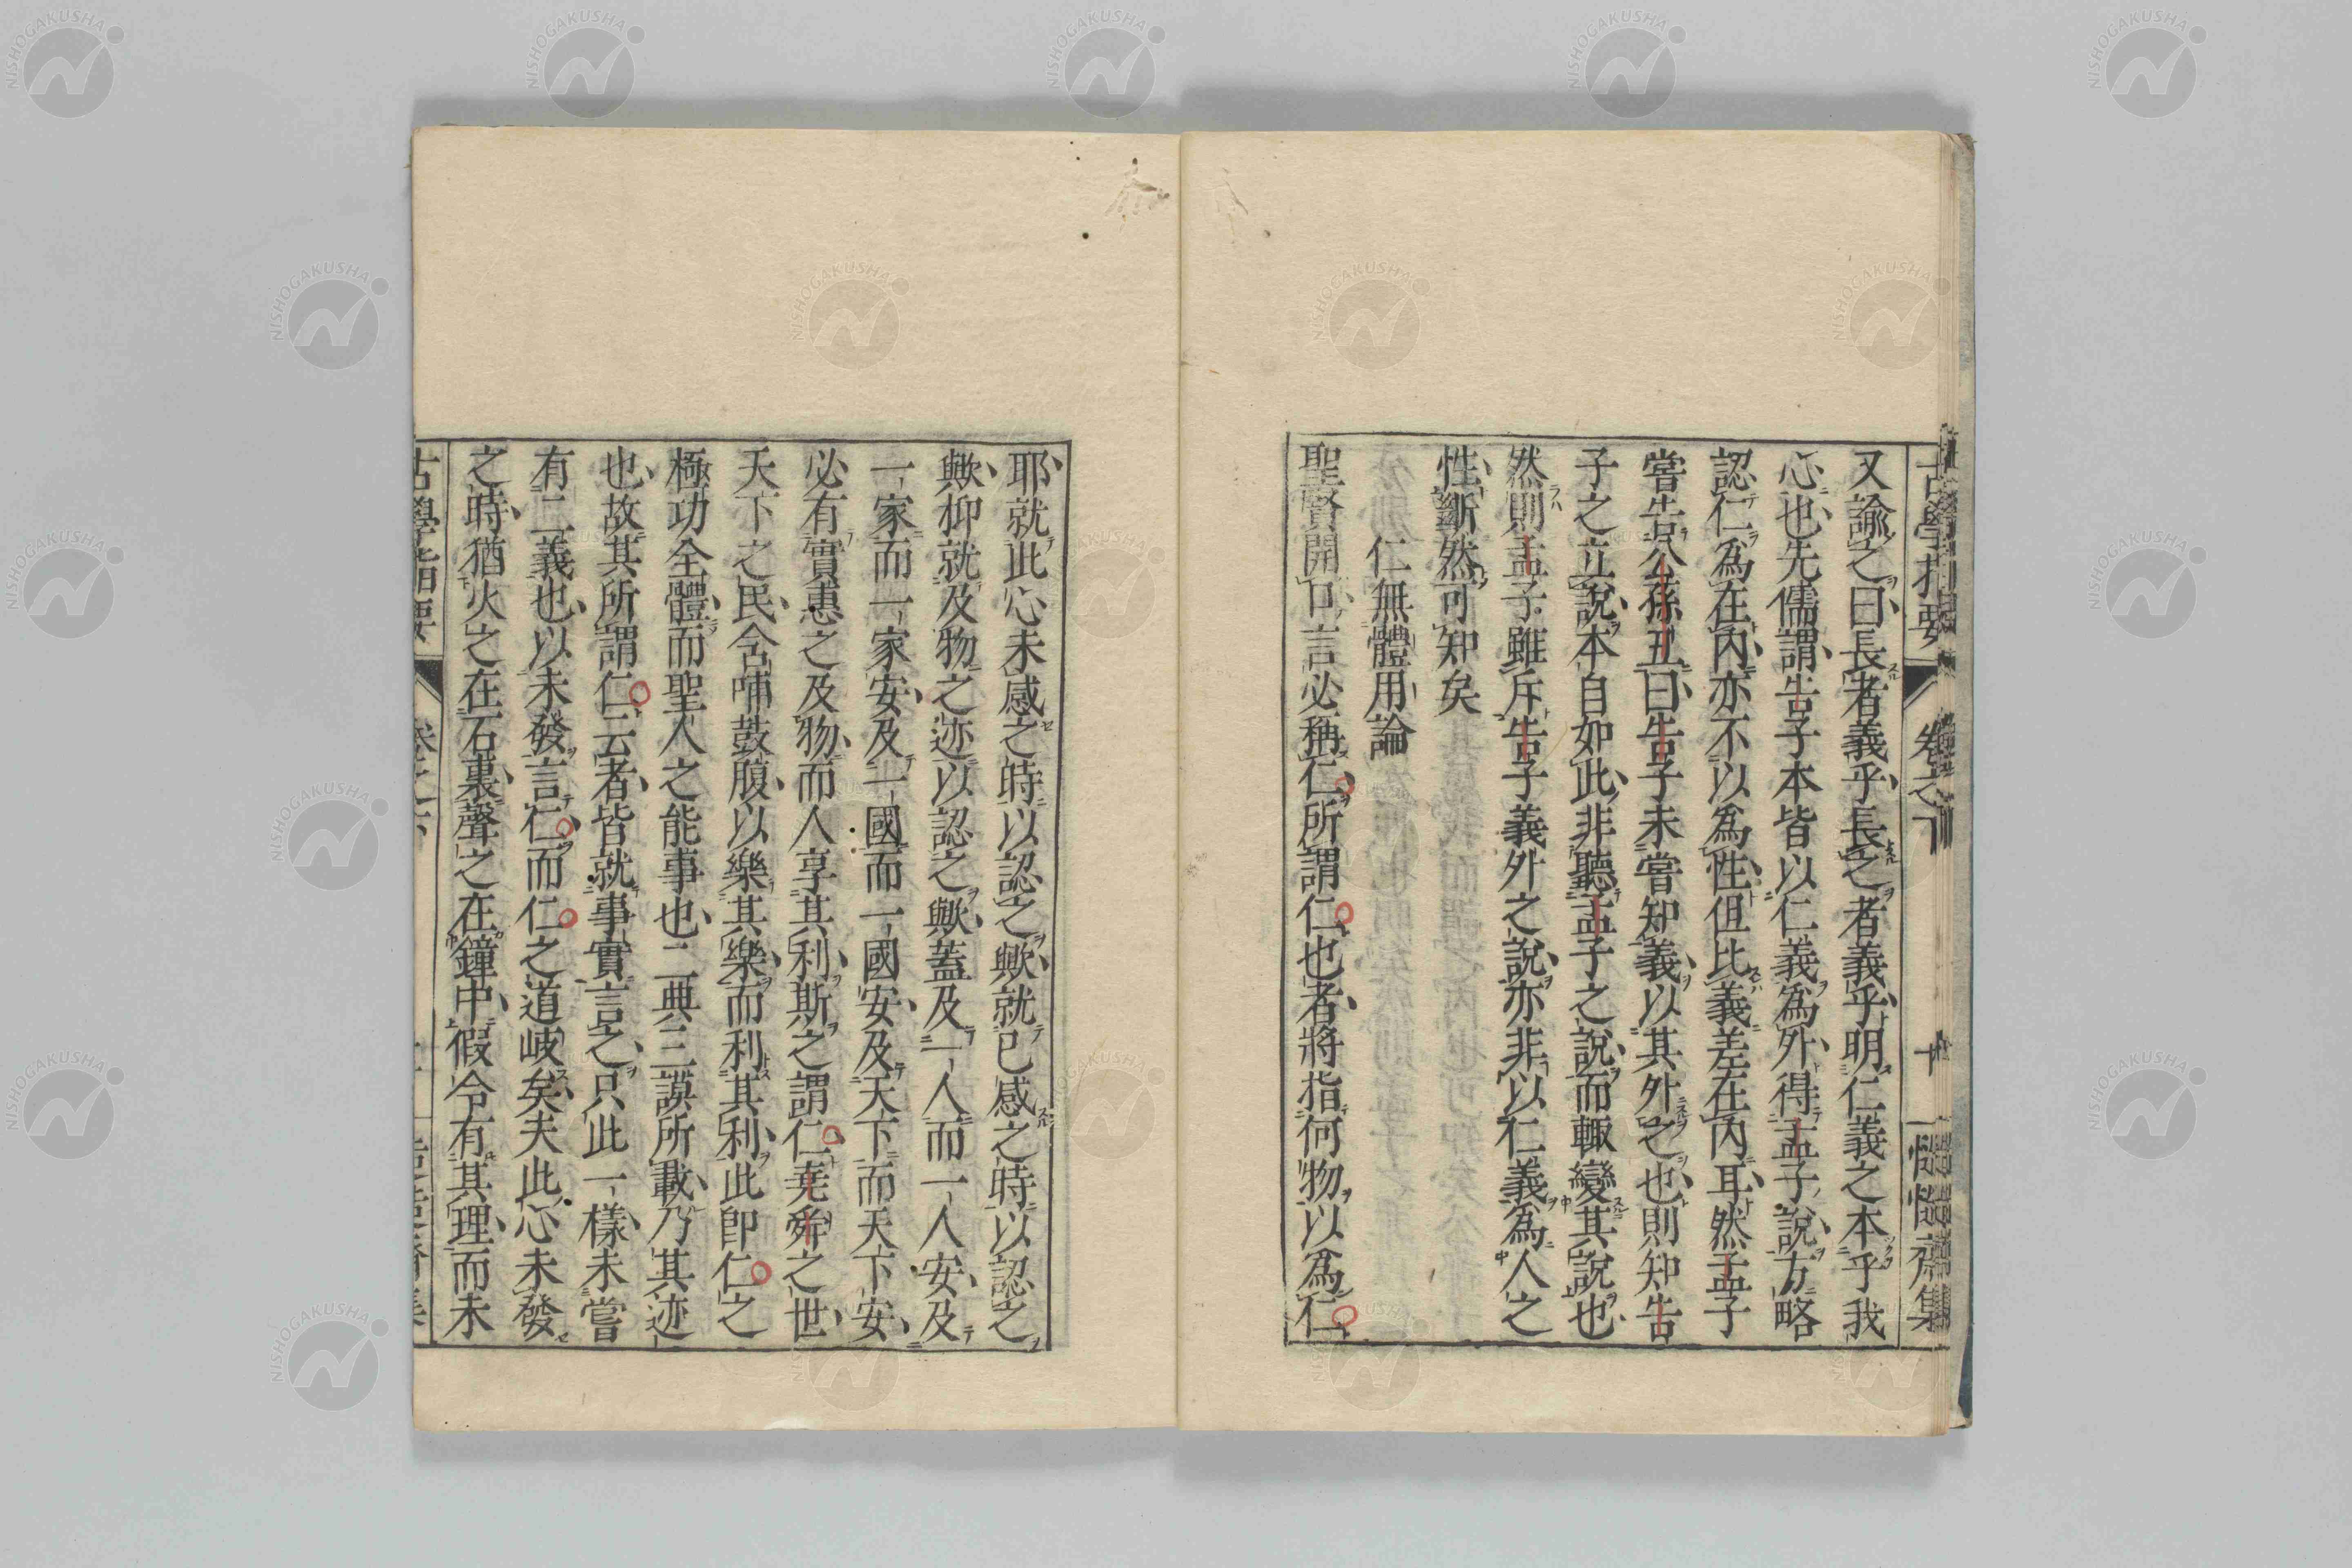 古學指要 卷之下 十一 慥慥齋集
又諭之曰長者義乎長之者義乎明仁義之本乎我
心也先儒謂告子本皆以仁義爲外得孟子說方略
認仁爲在內亦不以爲性但比義差在內耳然孟子
嘗告公孫丑曰告子未嘗知義以其外之也則知告
子之立說本自如此非聽孟子之說而輙變其說也
然則孟子雖斥告子義外之說亦非以仁義爲人之
性斷然可知矣
仁無體用論
聖賢開口言必稱仁所謂仁也者將指何物以爲仁
耶就此心未感之時以認之歟就已感之時以認之
歟抑就及物之迹以認之歟蓋及一人而一人安及
一家而一家安及一國而一國安及天下而天下安
必有實惠之及物而人享其利斯之謂仁堯舜之世
天下之民含哺鼓腹以樂其樂而利其利此卽仁之
極功全體而聖人之能事也二典三謨所載乃其迹
也故其所謂仁云者皆就事實言之只此一樣未嘗
有二義也以未發言仁而仁之道岐矣夫此心未發
之時猶火之在石裏聲之在鐘中假令有其理而未
古學指要 卷之下
NISHOGAKUSHA